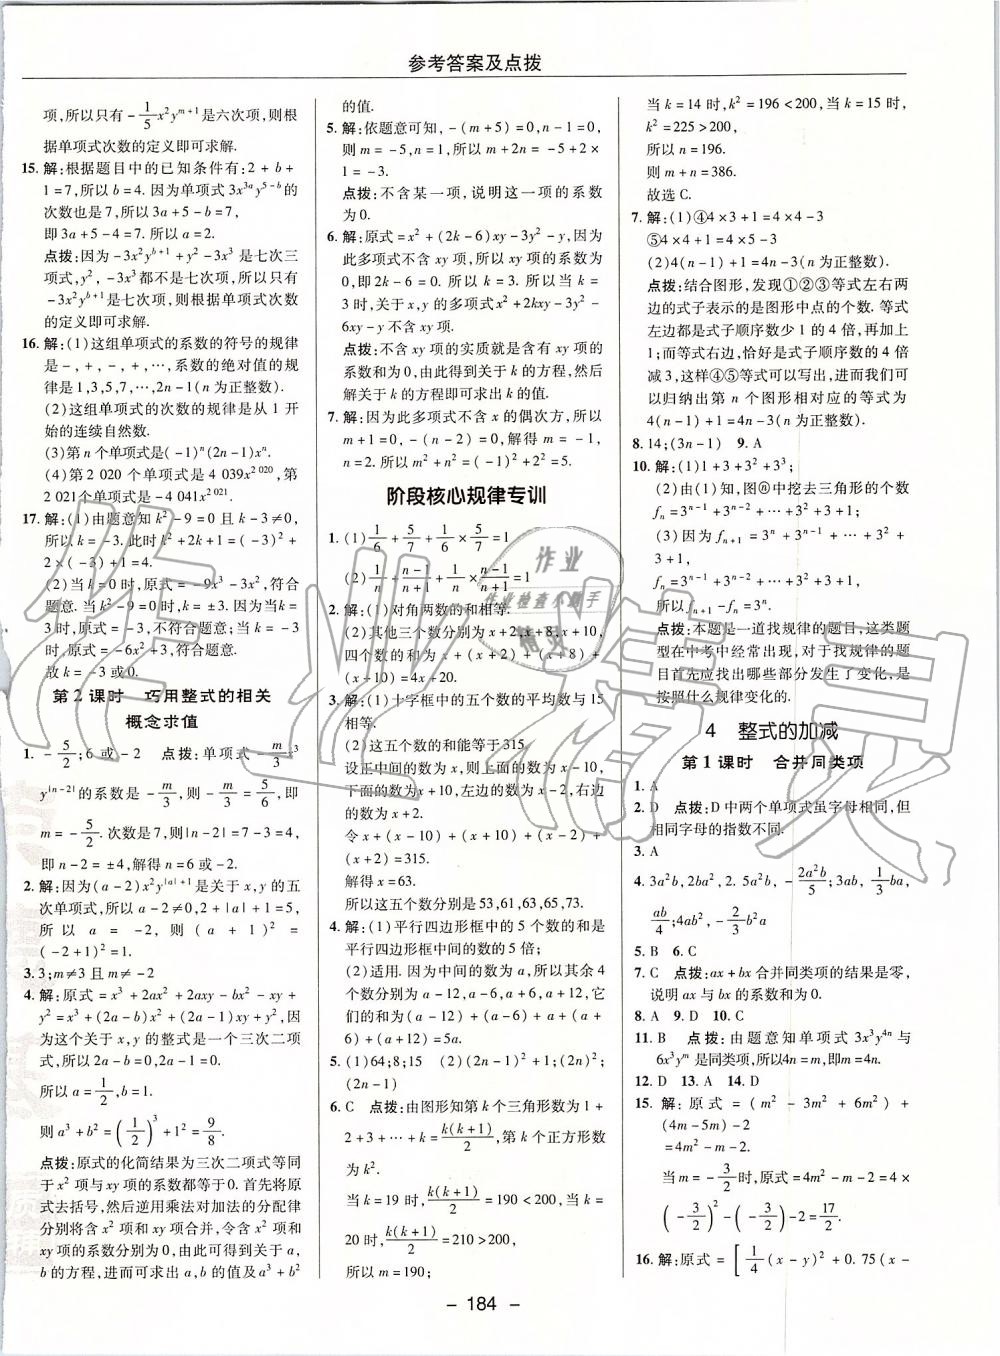 参考答案及点拨
项,所以只有-1/5x²yᵐ⁺¹是六次项,则根
据单项式次数的定义即可求解.
15. 解:根据题目中的已知条件有:2+b+
1=7,所以b=4. 因为单项式3x³ᵃy⁵⁻ᵇ的
次数也是7,所以3a+5-b=7,
即3a+5-4=7. 所以a=2.
点拨:因为-3x²yᵇ⁺¹+y²-3x³是七次三
项式,y²,-3x³都不是七次项,所以只有
-3x²yᵇ⁺¹是七次项,则根据单项式次数
的定义即可求解.
16. 解:(1)这组单项式的系数的符号的规律
是-,+,-,+,…,系数的绝对值的规
律是1,3,5,7,…,2n-1(n为正整数).
(2)这组单项式的次数的规律是从1开
始的连续自然数.
(3)第n个单项式是(-1)ⁿ(2n-1)xⁿ.
(4)第2 020个单项式是4 039x²⁰²⁰,第
2 021个单项式是-4 041x²⁰²¹.
17. 解:(1)由题意知k²-9=0且k-3≠0,
所以k=-3. 此时k²+2k+1=(-3)²+
2×(-3)+1=4.
(2)当k=0时,原式=-9x³-3x²,符合
题意. 当k²-9=0时,k=±3. 因为当k=
3时,原式=-3x²,不符合题意;当k=-3
时,原式=-6x³+3,符合题意.
故k=-3或0.
第2课时 巧用整式的相关
概念求值
1. -5/2;6或-2 点拨:单项式-m/3x³
y|ⁿ⁻²|的系数是-m/3,则-m/3=5/6,即
m=-5/2. 次数是7,则|n-2|=7-3=4,
即n-2=±4,解得n=6或-2.
2. 解:因为(a-2)x²y|ᵃ|⁺¹是关于x,y的五
次单项式,所以a-2≠0,2+|a|+1=5,
所以a=-2,则(a+1)²=
(-2+1)²=1.
3. 3;m≠3且m≠-2
4. 解:原式=x³+2ax²+2axy-bx²-xy+
y²=x³+(2a-b)x²+(2a-1)xy+y²,因
为这个关于x,y的整式是一个三次二项
式,所以2a-b=0,2a-1=0.
所以a=1/2,b=1.
则a³+b²=(1/2)³+1²=9/8.
点拨:原式的化简结果为三次二项式等同
于x²项与xy项的系数都等于0. 首先将原
式去括号,然后逆用乘法对加法的分配律
分别将含x²项和xy项合并,令含x²项和
xy项的系数分别为0,由此可得到关于a,
b的方程,进而可求出a,b的值及a³+b²
的值.
5. 解:依题意可知,-(m+5)=0,n-1=0,
则m=-5,n=1,所以m+2n=-5+2×
1=-3.
点拨:不含某一项,说明这一项的系数
为0.
6. 解:原式=x²+(2k-6)xy-3y²-y,因为
此多项式不含xy项,所以xy项的系数为
0,即2k-6=0. 所以k=3. 所以当k=
3时,关于x,y的多项式x²+2kxy-3y²-
6xy-y不含xy项.
点拨:不含xy项的实质就是含有xy项的
系数和为0,由此得到关于k的方程,然后
解关于k的方程即可求出k的值.
7. 解:因为此多项式不含x的偶次方,所以
m+1=0,-(n-2)=0,解得m=-1,
n=2. 所以m²+n²=(-1)²+2²=5.
阶段核心规律专训
1. (1)1/6+5/7+1/6×5/7=1
(2)1/n+(n-1)/(n+1)+1/n×(n-1)/(n+1)=1
2. 解:(1)对角两数的和相等.
(2)其他三个数分别为x+2,x+8,x+10,
x+(x+2)+(x+8)+
(x+10)=4x+20.
3. 解:(1)十字框中的五个数的平均数与15
相等.
(2)这五个数的和能等于315.
设正中间的数为x,则上面的数为x-10,
下面的数为x+10,左边的数为x-2,右边
的数为x+2.
令x+(x-10)+(x+10)+(x-2)+
(x+2)=315.
解得x=63.
所以这五个数分别是53,61,63,65,73.
4. 解:(1)平行四边形框中的5个数的和是
平行四边形框中间的数的5倍;
(2)适用. 因为中间的数为a,所以其余4
个数分别为a-12,a-6,a+6,a+12,它
们的和为(a-12)+(a-6)+a+(a+
6)+(a+12)=5a.
5. (1)64;8;15 (2)(n-1)²+1;(2n-2);
(2n-1)
6. C 点拨:由图形知第k个三角形数为1+
2+3+…+k=k(k+1)/2,第k个正方形数
为k².
当k=19时,k(k+1)/2=190<200,当k=
20时,k(k+1)/2=210>200,
所以m=190;
当k=14时,k²=196<200,当k=15时,
k²=225>200,
所以n=196.
则m+n=386.
故选C.
7. 解:(1)④4×3+1=4×4-3
⑤4×4+1=4×5-3
(2)4(n-1)+1=4n-3(n为正整数).
点拨:结合图形,发现①②③等式左右两
边的式子表示的是图形中点的个数. 等式
左边都是式子顺序数少1的4倍,再加上
1;而等式右边,恰好是式子顺序数的4倍
减3,这样④⑤等式可以写出,进而我们可
以归纳出第n个图形相对应的等式为
4(n-1)+1=4n-3(n为正整数).
8. 14;(3n-1) 9. A
10. 解:(1)1+3+3²+3³;
(2)由(1)知,图ⓝ中挖去三角形的个数
fₙ=3ⁿ⁻¹+3ⁿ⁻²+…+3+1;
(3)因为fₙ₊₁=3ⁿ+3ⁿ⁻¹+…+
3+1,
fₙ=3ⁿ⁻¹+3ⁿ⁻²+…+3+1,
所以fₙ₊₁-fₙ=3ⁿ.
点拨:本题是一道找规律的题目,这类题
型在中考中经常出现,对于找规律的题
目首先应找出哪些部分发生了变化,是
按照什么规律变化的.
4 整式的加减
第1课时 合并同类项
1. A
2. D 点拨:D中两个单项式虽字母相同,但
相同字母的指数不同.
3. A
4. 3a²b,2ba²,2.5a²b,-2a²b/5;3ab,1/3ba,
ab/4;4ab²,-2/3b²a
5. B 6. C
7. C 点拨:ax+bx合并同类项的结果是零,
说明ax与bx的系数和为0.
8. A 9. D 10. C
11. B 点拨:由题意知单项式3x³y⁴ⁿ与
6x³yᵐ是同类项,所以4n=m,即m=4n.
12. D 13. A 14. D
15. 解:原式=(m²-3m²+6m²)+
(4m-5m)-2
=4m²-m-2.
当m=-3/2时,原式=4m²-m-2=4×
(-3/2)²-(-3/2)-2=17/2.
16. 解:原式=[1/4(x-y)²+0.75(x-
- 184 -
作业
作业检查小助手
精灵